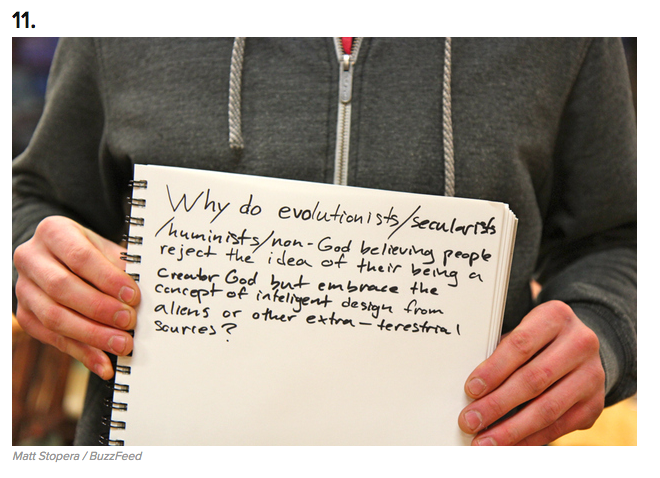 11.
Why do evolutionists/secularists
/huminists/non-God believing people
reject the idea of their being a
Creator God but embrace the
concept of inteligent design from
aliens or other extra-terestrial
sources?
Matt Stopera / BuzzFeed